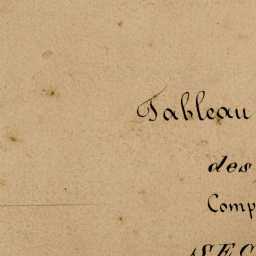 Tableau
des
Comp
SEC